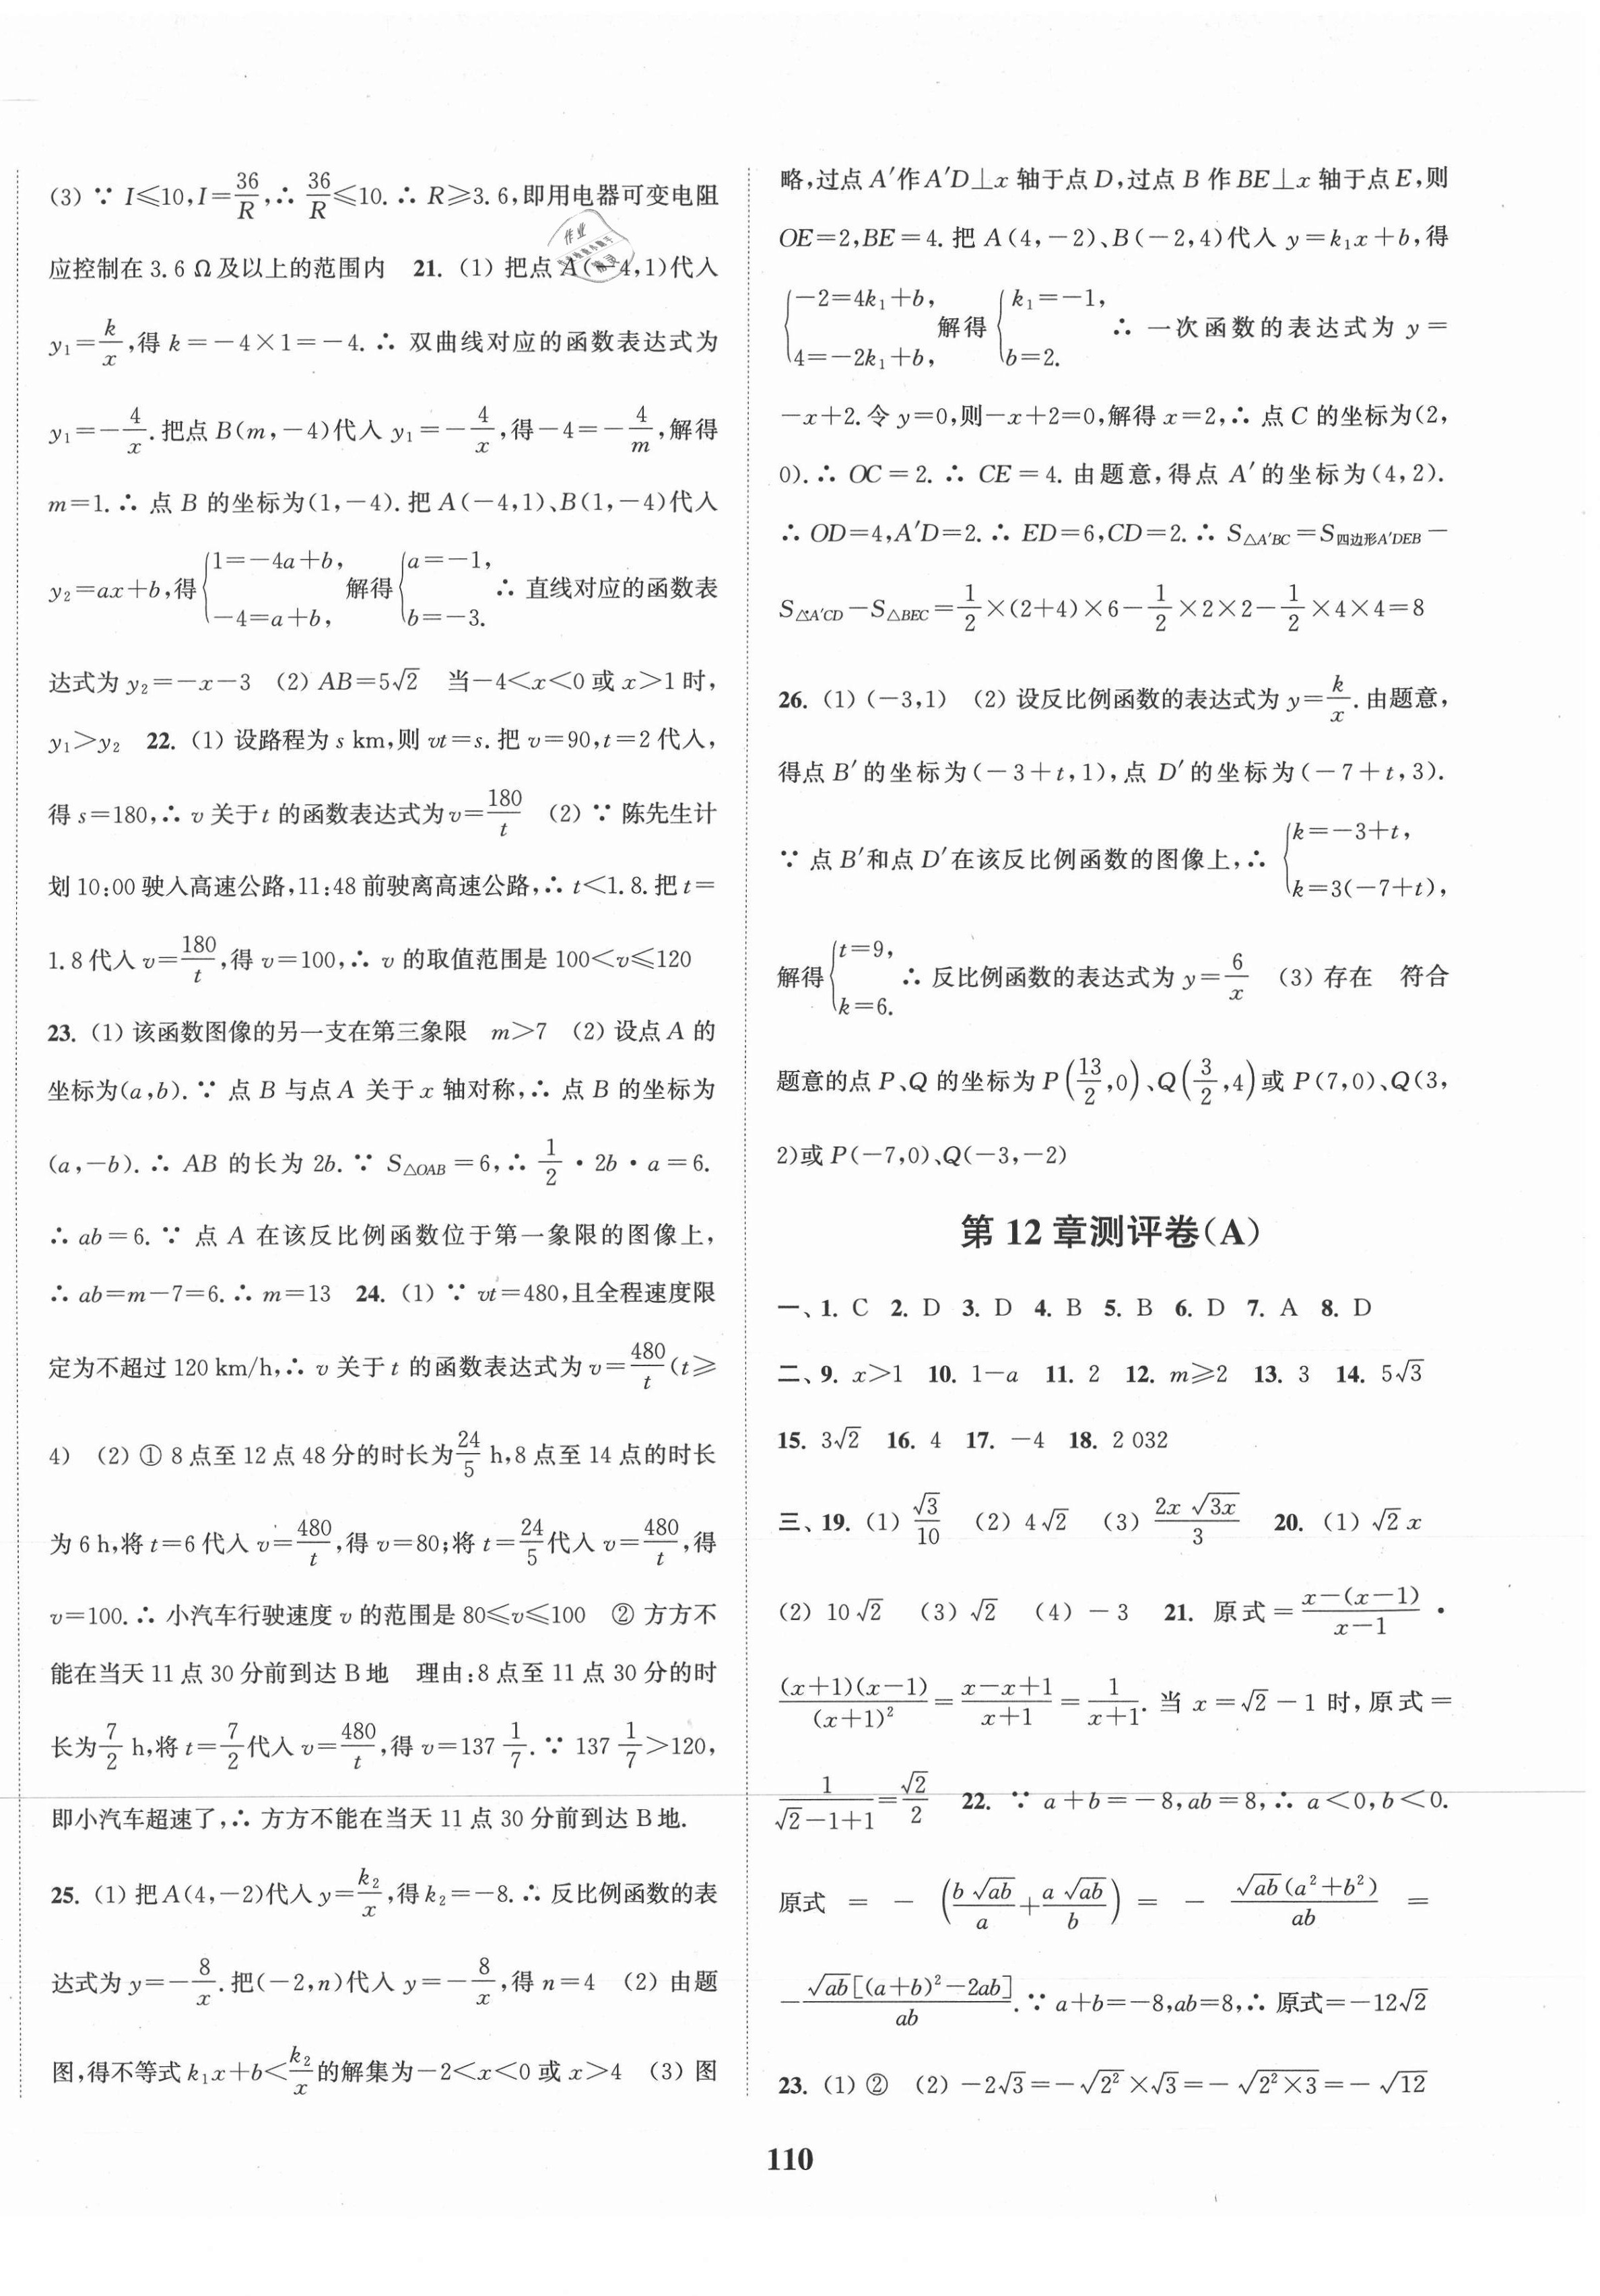 (3) ∵ I≤10,I=36/R,∴ 36/R≤10.∴ R≥3.6,即用电器可变电阻
应控制在 3.6 Ω 及以上的范围内 21. (1) 把点 A(−4,1)代入
y₁=k/x,得 k=−4×1=−4.∴ 双曲线对应的函数表达式为
y₁=−4/x.把点 B(m,−4)代入 y₁=−4/x,得−4=−4/m,解得
m=1.∴ 点 B 的坐标为(1,−4).把 A(−4,1)、B(1,−4)代入
y₂=ax+b,得{1=−4a+b, −4=a+b, 解得{a=−1, b=−3. ∴ 直线对应的函数表
达式为 y₂=−x−3 (2) AB=5√2 当−4<x<0 或 x>1 时,
y₁>y₂ 22. (1) 设路程为 s km,则 vt=s.把 v=90,t=2 代入,
得 s=180,∴ v 关于 t 的函数表达式为 v=180/t (2) ∵ 陈先生计
划 10:00 驶入高速公路,11:48 前驶离高速公路,∴ t<1.8.把 t=
1.8 代入 v=180/t,得 v=100,∴ v 的取值范围是 100<v≤120
23. (1) 该函数图像的另一支在第三象限 m>7 (2) 设点 A 的
坐标为(a,b).∵ 点 B 与点 A 关于 x 轴对称,∴ 点 B 的坐标为
(a,−b).∴ AB 的长为 2b.∵ S△OAB=6,∴ 1/2·2b·a=6.
∴ ab=6.∵ 点 A 在该反比例函数位于第一象限的图像上,
∴ ab=m−7=6.∴ m=13 24. (1) ∵ vt=480,且全程速度限
定为不超过 120 km/h,∴ v 关于 t 的函数表达式为 v=480/t(t≥
4) (2) ① 8 点至 12 点 48 分的时长为24/5 h,8 点至 14 点的时长
为 6 h,将 t=6 代入 v=480/t,得 v=80;将 t=24/5代入 v=480/t,得
v=100.∴ 小汽车行驶速度 v 的范围是 80≤v≤100 ② 方方不
能在当天 11 点 30 分前到达 B 地 理由:8 点至 11 点 30 分的时
长为7/2 h,将 t=7/2代入 v=480/t,得 v=137 1/7.∵ 137 1/7>120,
即小汽车超速了,∴ 方方不能在当天 11 点 30 分前到达 B 地.
25. (1) 把 A(4,−2)代入 y=k₂/x,得 k₂=−8.∴ 反比例函数的表
达式为 y=−8/x.把(−2,n)代入 y=−8/x,得 n=4 (2) 由题
图,得不等式 k₁x+b<k₂/x的解集为−2<x<0 或 x>4 (3) 图
略,过点 A′作 A′D⊥x 轴于点 D,过点 B 作 BE⊥x 轴于点 E,则
OE=2,BE=4.把 A(4,−2)、B(−2,4)代入 y=k₁x+b,得
{−2=4k₁+b, 4=−2k₁+b, 解得{k₁=−1, b=2. ∴ 一次函数的表达式为 y=
−x+2.令 y=0,则−x+2=0,解得 x=2,∴ 点 C 的坐标为(2,
0).∴ OC=2.∴ CE=4.由题意,得点 A′的坐标为(4,2).
∴ OD=4,A′D=2.∴ ED=6,CD=2.∴ S△A′BC=S四边形A′DEB−
S△A′CD−S△BEC=1/2×(2+4)×6−1/2×2×2−1/2×4×4=8
26. (1) (−3,1) (2) 设反比例函数的表达式为 y=k/x.由题意,
得点 B′的坐标为(−3+t,1),点 D′的坐标为(−7+t,3).
∵ 点 B′和点 D′在该反比例函数的图像上,∴ {k=−3+t, k=3(−7+t),
解得{t=9, k=6. ∴ 反比例函数的表达式为 y=6/x (3) 存在 符合
题意的点 P、Q 的坐标为 P(13/2,0)、Q(3/2,4)或 P(7,0)、Q(3,
2)或 P(−7,0)、Q(−3,−2)
第 12 章测评卷(A)
一、1. C 2. D 3. D 4. B 5. B 6. D 7. A 8. D
二、9. x>1 10. 1−a 11. 2 12. m≥2 13. 3 14. 5√3
15. 3√2 16. 4 17. −4 18. 2 032
三、19. (1) √3/10 (2) 4√2 (3) 2x√3x/3 20. (1) √2 x
(2) 10√2 (3) √2 (4) −3 21. 原式=x−(x−1)/x−1 ·
(x+1)(x−1)/(x+1)²=x−x+1/x+1=1/x+1.当 x=√2−1 时,原式=
1/√2−1+1=√2/2 22. ∵ a+b=−8,ab=8,∴ a<0,b<0.
原式 = −(b√ab/a+a√ab/b) = −√ab(a²+b²)/ab =
−√ab[(a+b)²−2ab]/ab.∵ a+b=−8,ab=8,∴ 原式=−12√2
23. (1) ② (2) −2√3=−√2²×√3=−√2²×3=−√12
110